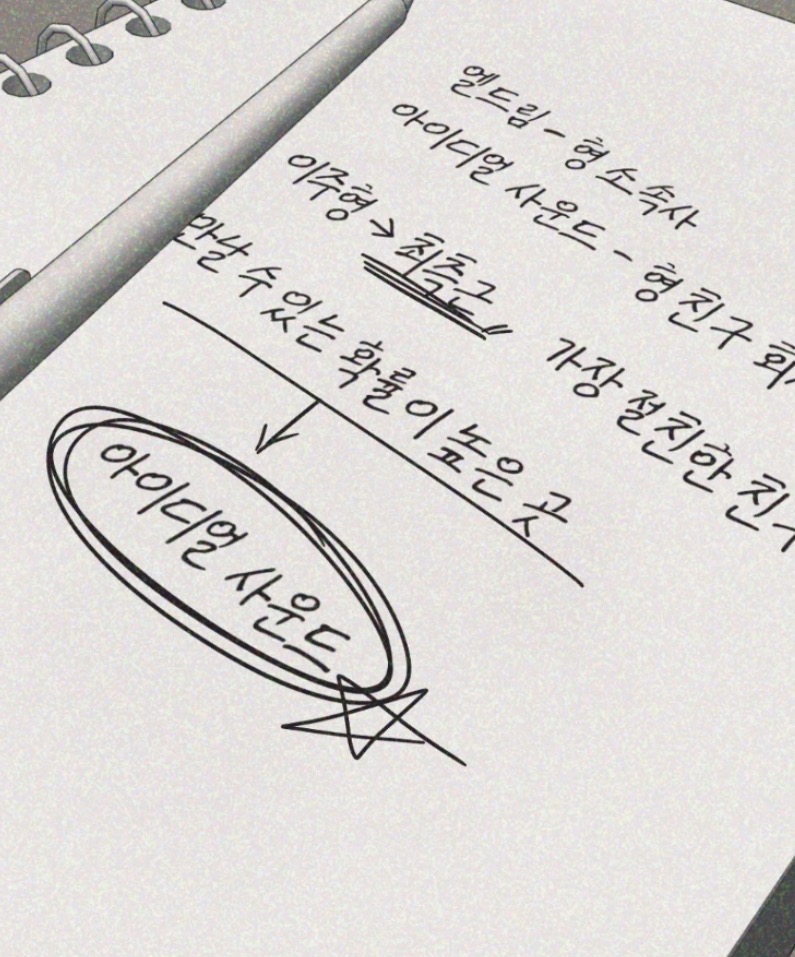 엘드림 - 형 소속사
아이디얼 사운드 - 형 친구 회사
이주형 → 최측근 가장 절친한 친구
만날 수 있는 확률이 높은 곳
아이디얼 사운드